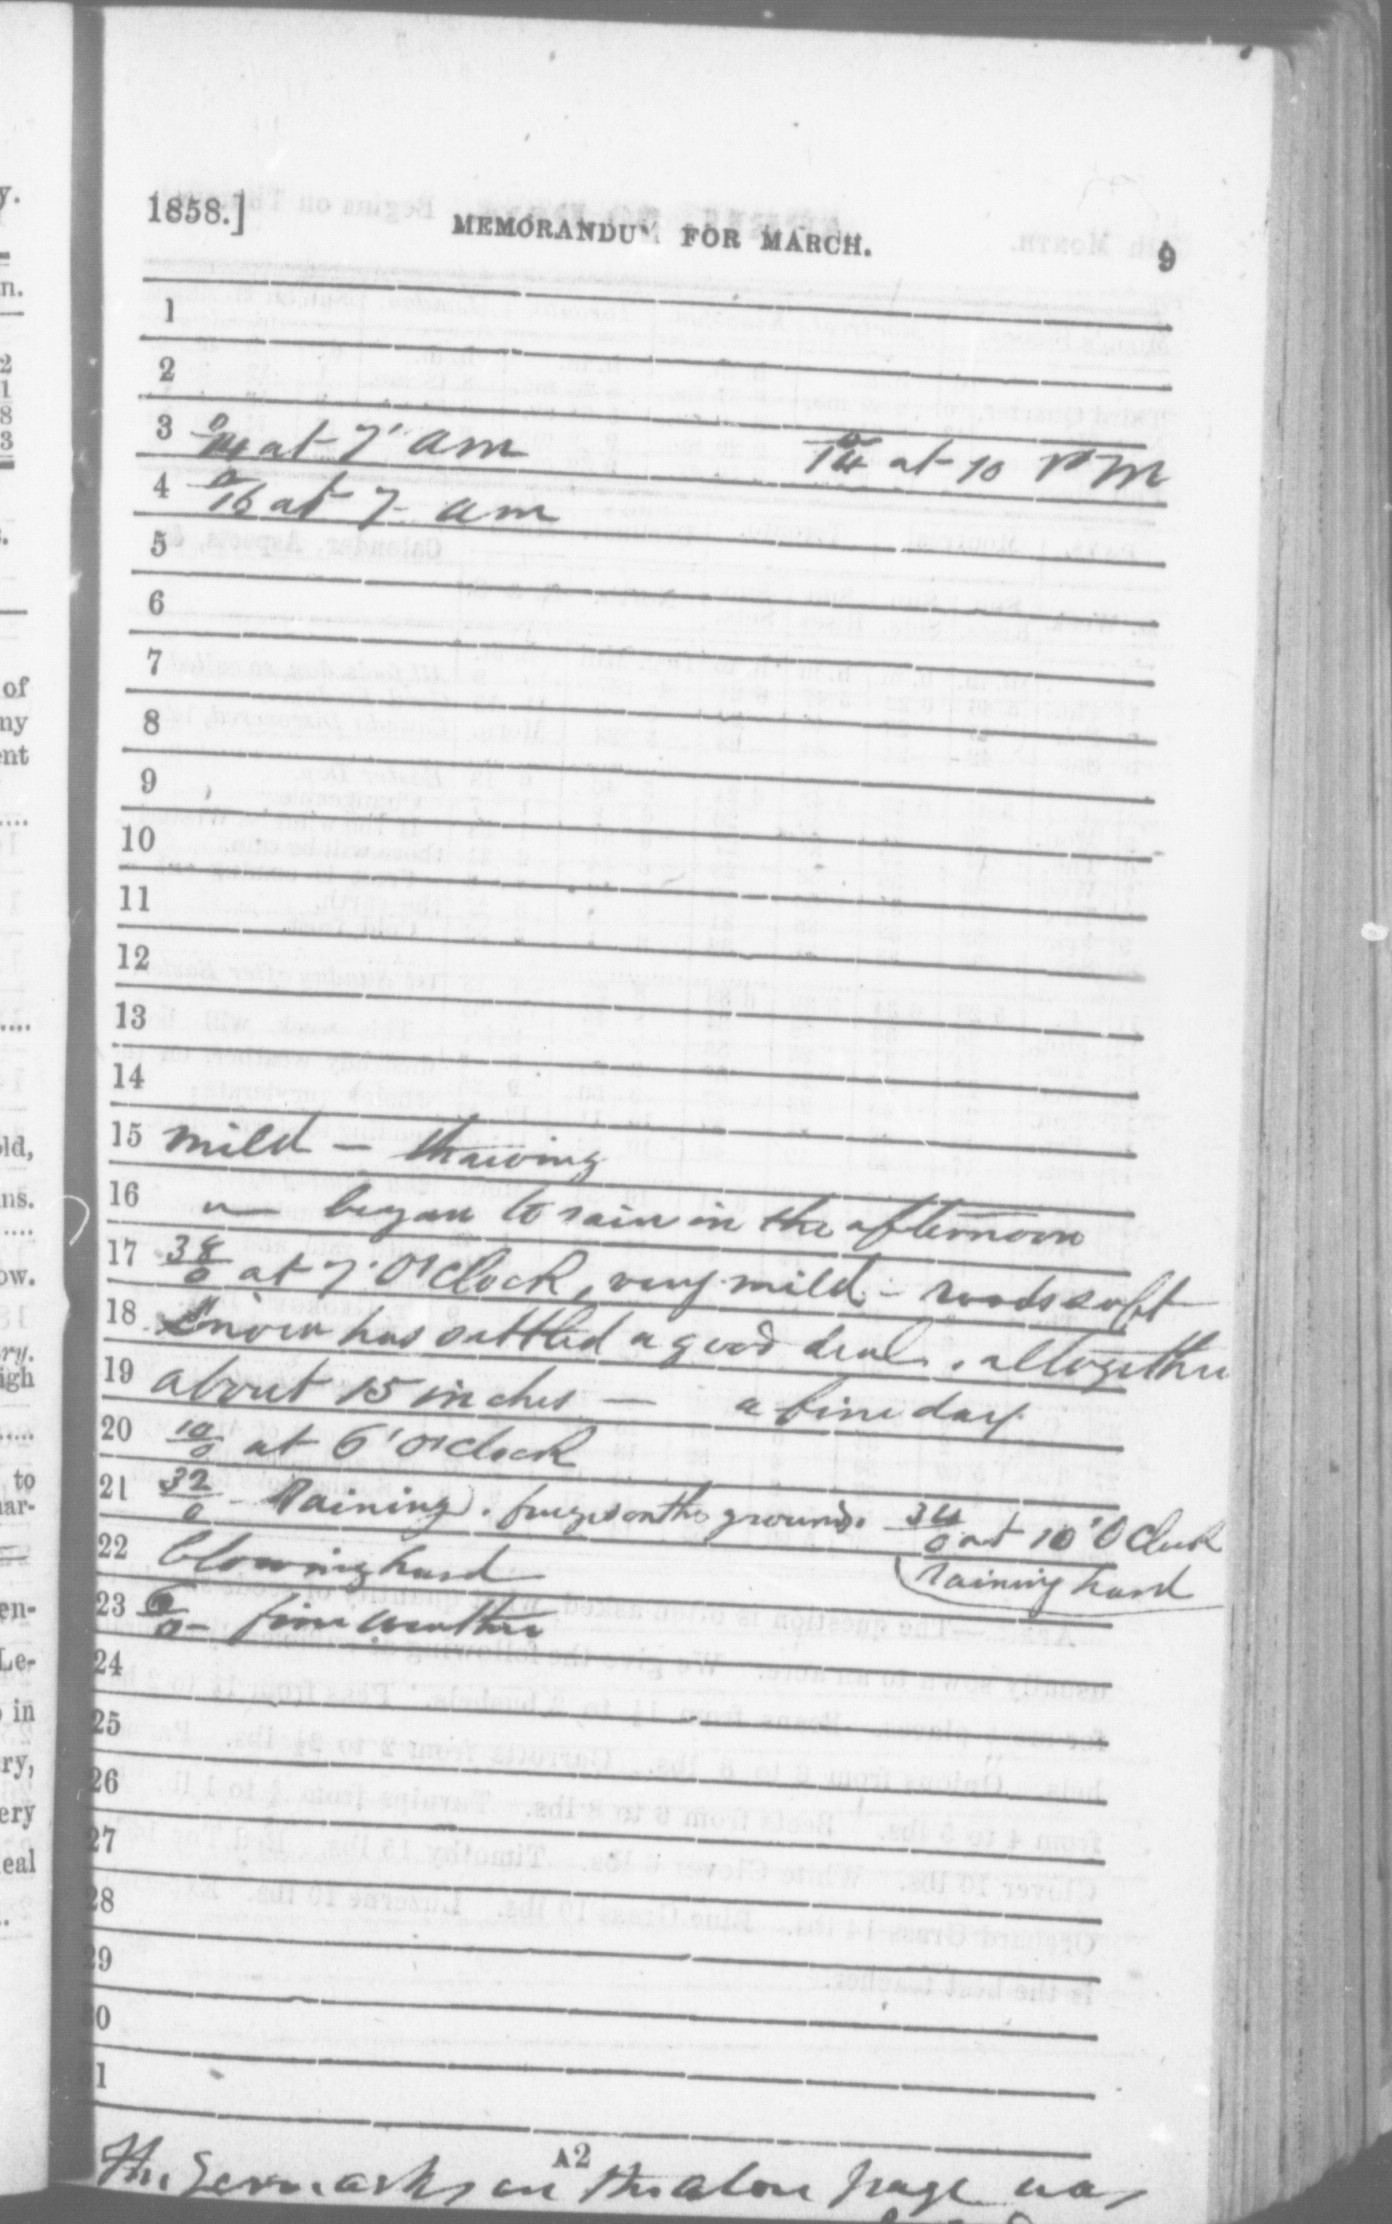 1858.] MEMORANDUM FOR MARCH. 9
1
2
3 0/14 at 7' am 0/14 at 10 PM
4 0/16 at 7 - am
5
6
7
8
9
10
11
12
13
14
15 mild - thawing
16 " began to rain in the afternoon
17 38/0 at 7' O'Clock, very mild - roads soft
18 Snow has sattled a good deal, altogether
19 about 15 inches - a fine day
20 10/0 at 6' O'Clock
21 32/0 - Raining. freezes on the ground. 34/0 at 10' O Clock
22 blowing hard raining hard
23 6/0 - fine weather
24
25
26
27
28
29
30
31
A2
The remarks on the above page was